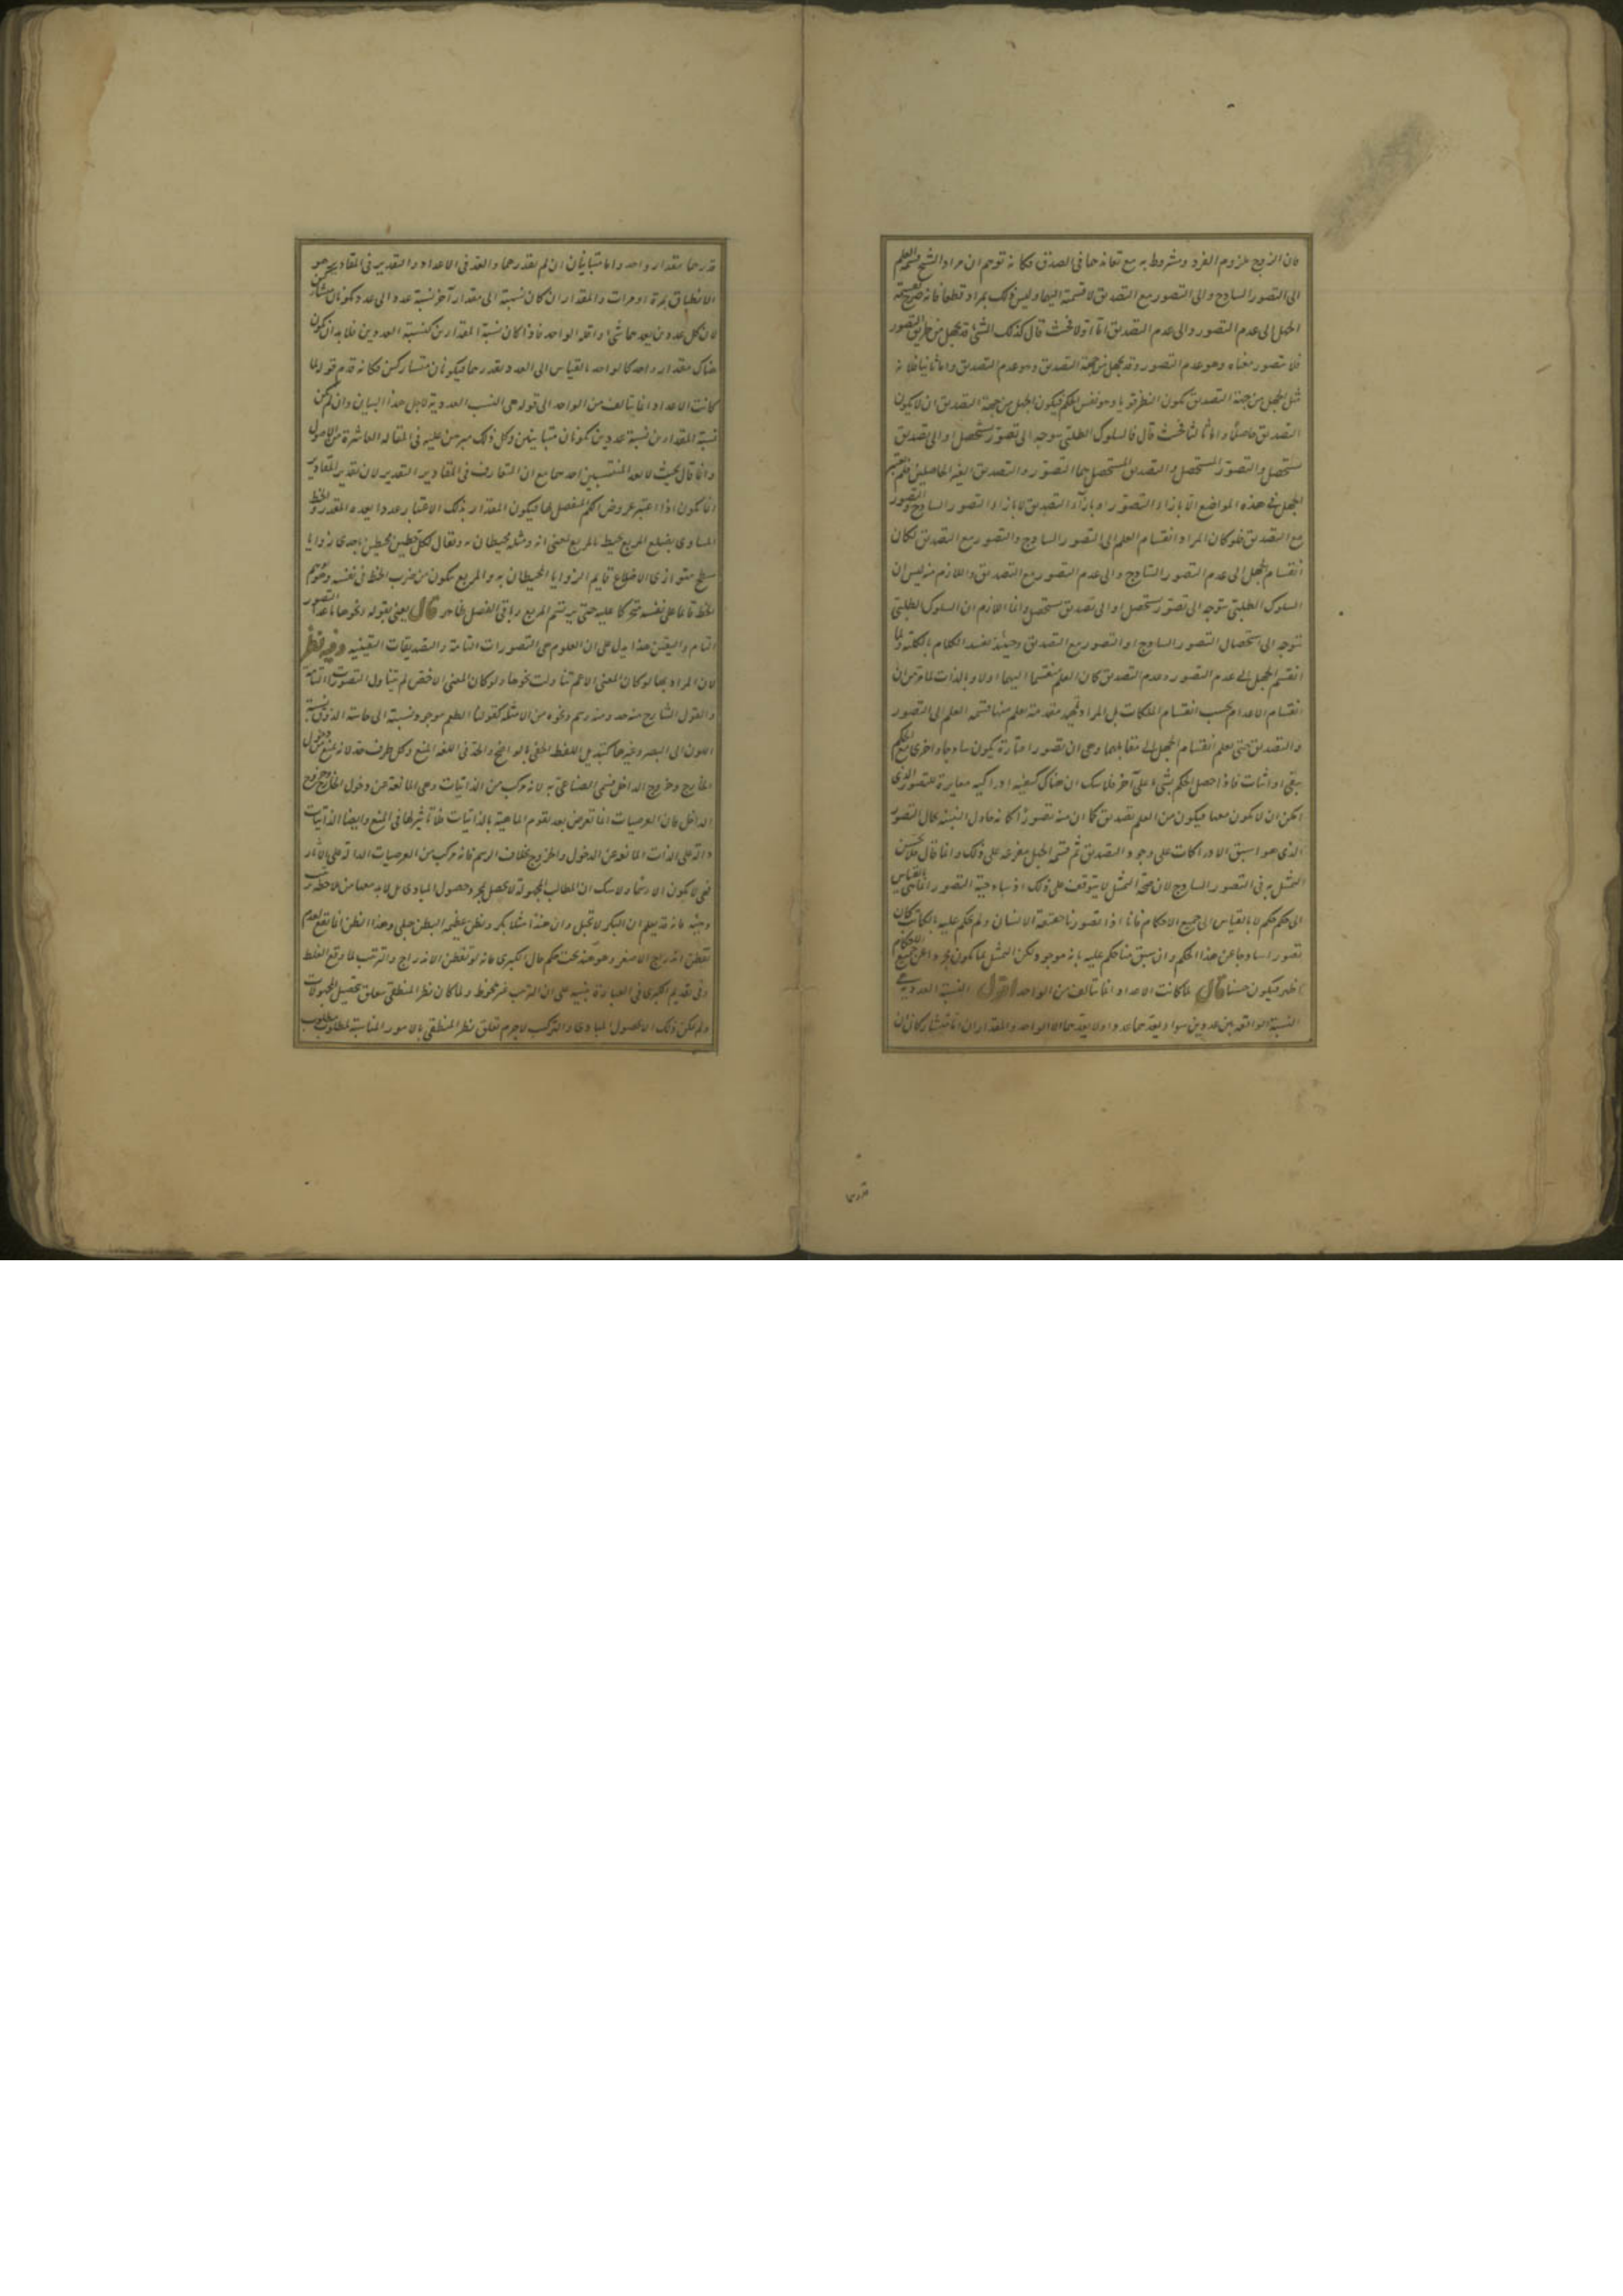 فان الزوج ملزوم الفرد ومشروط به مع تعاندهما في الصدق فكانه توهم ان مراد الشيخ قسمة العلم
الى التصور الساذج والى التصور مع التصديق لا قسمته اليهما وليس ذلك بمراد قطعا فانه صرح بقسمة
الجهل الى عدم التصور والى عدم التصديق اما اولا فحيث قال كذلك الشيء قد يجهل من طريق التصور
فلا يتصور معناه وهو عدم التصور وقد يجهل من جهة التصديق وهو عدم التصديق واما ثانيا فلانه
مثل الجهل من جهة التصديق بكون القطر قويا وهو نفس الحكم فيكون الجهل من جهة التصديق ان لا يكون
التصديق حاصلا واما ثالثا فحيث قال فالسلوك الطلبي يتوجه الى تصور يستحصل او الى تصديق
يستحصل والتصور المستحصل والتصديق المستحصل هما التصور والتصديق الغير الحاصلين فلم يعتبر
الجهل في هذه المواضع الا بازاء التصور او بازاء التصديق لا بازاء التصور الساذج والتصور
مع التصديق فلو كان المراد انقسام العلم الى التصور الساذج والتصور مع التصديق لكان
انقسام الجهل الى عدم التصور الساذج والى عدم التصور مع التصديق واللازم منه ليس ان
السلوك الطلبي يتوجه الى تصور يستحصل او الى تصديق يستحصل وانما اللازم ان السلوك الطلبي
يتوجه الى استحصال التصور الساذج او التصور مع التصديق وحينئذ يفسد الكلام بالكلية ولما
انقسم الجهل الى عدم التصور وعدم التصديق كان العلم منقسما اليهما اولا وبالذات لما مر من ان
انقسام الاعدام بحسب انقسام الملكات بل المراد تمهيد مقدمة يعلم منها قسمة العلم الى التصور
والتصديق حتى يعلم انقسام الجهل الى مقابليهما وهي ان تصورا ما تارة يكون ساذجا واخرى مع الحكم
بنفي او اثبات فاذا حصل الحكم بشيء على آخر فلا شك ان هناك كيفية ادراكية مغايرة للتصور الذي
امكن ان لا يكون معها فيكون من العلم تصديق كما ان منه تصورا كانه حاول التنبيه بحال التصور
الذي هو اسبق الادراكات على وجود التصديق ثم قسمة الجهل مفرعة على ذلك وانما قال فلا يحسن
التمثيل به في التصور الساذج لان صحة التمثيل لا يتوقف على ذلك اذ ساذجية التصور انما هي بالقياس
الى حكم حكم لا بالقياس الى جميع الاحكام فانا اذا تصورنا حقيقة الانسان ولم نحكم عليه بالكاتب كان
تصورا ساذجا عن هذا الحكم وان سبق منا حكم عليه بانه موجود ولكن التمثيل بما يكون مجردا عن جميع الاحكام
اظهر فيكون حسنا قال لما كانت الاعداد انما تتالف من الواحد اقول النسبة العددية هي
النسبة الواقعة بين عددين سواء يعدهما عدد او لا يعدهما الا الواحد والمقداران اما متشاركان ان
قدرهما
قدرهما مقدار واحد واما متباينان ان لم يقدرهما والعد في الاعداد والتقدير في المقادير هو
الانطباق بمرة او مرات والمقداران كان نسبته الى مقدار آخر نسبة عدد الى عدد يكونان متشاركين
لان كل عددين يعدهما شيء واقله الواحد فاذا كان نسبة المقدارين كنسبة العددين فلا بد ان يكون
هناك مقدار واحد كالواحد بالقياس الى العدد يقدرهما فيكونان متشاركين فكانه قدم قوله لما
كانت الاعداد انما يتالف من الواحد الى قوله هي النسب العددية لاجل هذا البيان وان لم يكن
نسبة المقدارين نسبة عددين يكونان متباينين وكل ذلك مبرهن عليه في المقالة العاشرة من الاصول
وانما قال بحيث لا يعد المنتسبين احدهما مع ان المتعارف في المقادير التقدير لان تقدير المقادير
انما يكون اذا اعتبر عروض الكم المنفصل لها فيكون المقدار بذلك الاعتبار عددا يعده المقدر والخط
المساوي لضلع المربع محيط بالمربع بمعنى انه ومثله محيطان به ويقال لكل خطين محيطين باحدى زوايا
سطح متوازي الاضلاع قايم الزوايا المحيطان به والمربع يكون من ضرب الخط في نفسه وتوهم
الخط قائما على نفسه متحركا عليه حتى يرتسم المربع وباقي الفصل ظاهر قال يعني بقوله ونحوها ما عدا التصور
التام واليقين هذا يدل على ان العلوم هي التصورات التامة والتصديقات اليقينية وفيه نظر
لان المراد بها لو كان المعنى الاعم تناولت نحوها ولو كان المعنى الاخص لم يتناول التصورات التامة
والقول الشارح منه حد ومنه رسم ونحوه من الامثلة كقولنا الطعم موجود ونسبته الى حاسة الذوق نسبة
اللون الى البصر وغيرها كتبديل اللفظ الخفي بالواضح والحد في اللغة المنع وكل طرف حد لانه يمنع دخول
الخارج وخروج الداخل فسمى الصناعي به لانه مركب من الذاتيات وهي المانعة من دخول الخارج وخروج
الداخل فان العرضيات انما تعرض بعد تقوم الماهية بالذاتيات فلا تاثير لها في المنع وايضا الذاتيات
دالة على الذات المانعة عن الدخول والخروج بخلاف الرسم فانه مركب من العرضيات الدالة على الآثار
فهي لا يكون الا رسما ولا شك ان المطالب المجهولة لا يحصل بمجرد حصول المبادي بل لا بد معها من ملاحظة ترتيب
وهيئة فانه قد يعلم ان البكر لا تحبل وان هندا مثلا بكر ويظن عظيمة البطن حبلى وهذا الظن انما يقع لعدم
تفطن اندراج الاصغر وهو هند تحت حكم حال الكبرى فانه لو تفطن الاندراج والترتب لما وقع الغلط
وفي تقديم الكبرى في العبارة تنبيه على ان الترتيب غير محفوظ ولما كان نظر المنطقي يتعلق بتحصيل المجهولات
ولم يكن ذلك الا بحصول المبادي والتركيب لا جرم تعلق نظر المنطقي بالامور المناسبة لمطلوب مطلوب